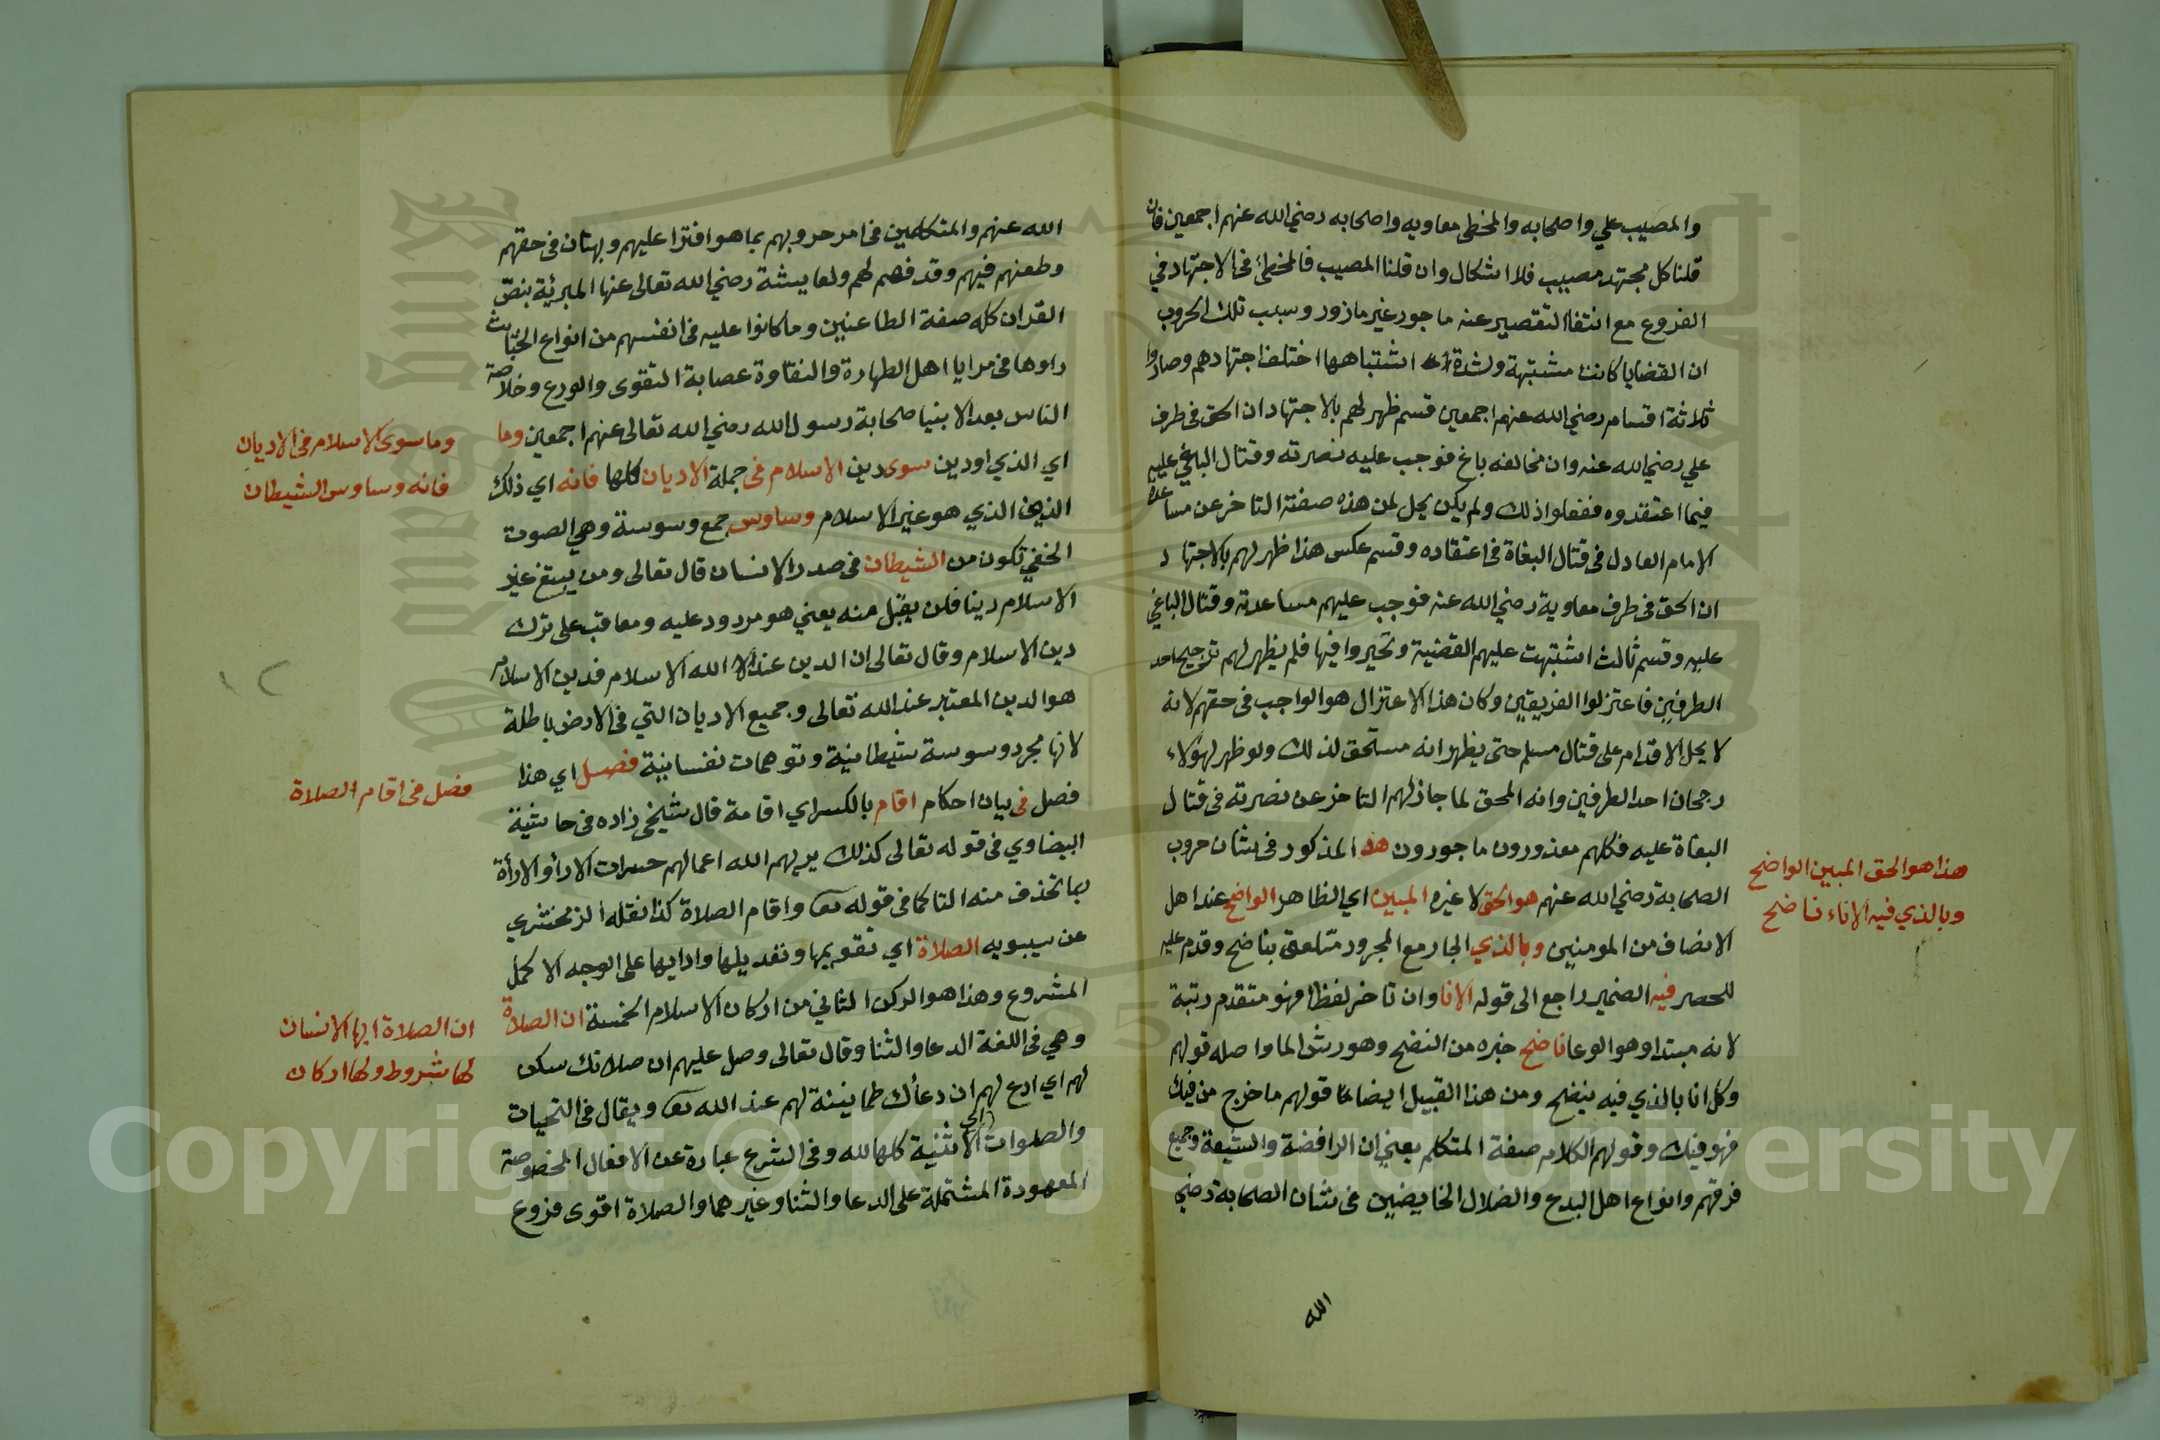 والمصيب علي واصحابه والمخطي معاويه واصحابه رضي الله عنهم اجمعين فان
قلنا كل مجتهد مصيب فلا اشكال وان قلنا المصيب فالمخطئ في الاجتهاد في
الفروع مع انتفا التقصير عنه ماجور غير مازور وسبب تلك الحروب
ان القضايا كانت مشتبهة ولشدة اشتباهها اختلف اجتهادهم وصاروا
ثلاثة اقسام رضي الله عنهم اجمعين قسم ظهر لهم بالاجتهاد ان الحق في طرف
علي رضي الله عنه وان مخالفه باغ فوجب عليه نصرته وقتال الباغي عليه
فيما اعتقدوه ففعلوا ذلك ولم يكن يحل لمن هذه صفته التاخر عن مساعدة
الامام العادل في قتال البغاة في اعتقاده وقسم عكس هذا ظهر لهم بالاجتهاد
ان الحق في طرف معاوية رضي الله عنه فوجب عليهم مساعدته وقتال الباغي
عليه وقسم ثالث اشتبهت عليهم القضية وتحيروا فيها فلم يظهر لهم ترجيح احد
الطرفين فاعتزلوا الفريقين وكان هذا الاعتزال هو الواجب في حقهم لانه
لا يحل الاقدام على قتال مسلم حتى يظهر انه مستحق لذلك ولو ظهر لهؤلاء
رجحان احد الطرفين وانه المحق لما جاز لهم التاخر عن نصرته في قتال
البغاة عليه فكلهم معذورون ماجورون هذا المذكور في شان حروب
الصحابة رضي الله عنهم هو الحق لا غيره المبين اي الظاهر الواضح عند اهل
الانصاف من المومنين وبالذي الجار مع المجرور متلعق بناضح وقدم عليه
للحصر فيه الضمير راجع الى قوله الانا وان تاخر لفظا فهو متقدم رتبة
لانه مبتدا وهو الوعا ناضح خبره من النضح وهو رش الما واصله قولهم
وكل انا بالذي فيه ينضح ومن هذا القبيل ايضا قولهم ما خرج من فيك
فهو فيك وقولهم الكلام صفة المتكلم يعني ان الرافضة والشيعة وجميع
فرقهم وانواع اهل البدع والضلال الخايضين في شان الصحابة رضي
الله
هذا هو الحق المبين الواضح
وبالذي فيه الاناء ناضح
الله عنهم والمتكلمين في امر حروبهم بما هو افترا عليهم وبهتان في حقهم
وطعنهم فيهم وقد فهم لهم ولعايشة رضي الله تعالى عنها المبرئة بنص
القران كله صفة الطاعنين وما كانوا عليه في انفسهم من انواع الخبائث
راوها في مرايا اهل الطهارة والنقاوة عصابة التقوى والورع وخلاصة
الناس بعد الانبيا صحابة رسول الله رضي الله تعالى عنهم اجمعين وما
اي الذي اودين سوى دين الاسلام في جملة الاديان كلها فانه اي ذلك
الدين الذي هو غير الاسلام وساوس جمع وسوسة وهي الصوت
الخفي تكون من الشيطان في صدر الانسان قال تعالى ومن يبتغ غير
الاسلام دينا فلن يقبل منه يعني هو مردود عليه ومعاقب على ترك
دين الاسلام وقال تعالى ان الدين عند الله الاسلام فدين الاسلام
هو الدين المعتبر عند الله تعالى وجميع الاديان التي في الارض باطلة
لانها مجرد وسوسة شيطانية وتوهمات نفسانية فصل اي هذا
فصل في بيان احكام اقام بالكسر اي اقامة قال شيخي زاده في حاشية
البيضاوي في قوله تعالى كذلك يريهم الله اعمالهم حسرات الاراأو الارأة
بما تحذف منه التا كما في قوله تعـ واقام الصلاة كذا نقله الزمخشري
عن سيبويه الصلاة اي تقويمها وتعديلها وادايها على الوجه الاكمل
المشروع وهذا هو الركن الثاني من اركان الاسلام الخمسة ان الصلاة
وهي في اللغة الدعا والثنا وقال تعالى وصل عليهم ان صلاتك سكن
لهم اي ادع لهم ان دعأك طمانينة لهم عند الله تعـ ويقال في التحيات
والصلوات اي الاثنية كلها لله وفي الشرع عبارة عن الافعال المخصوصة
المعهودة المشتملة على الدعا والثنا وغيرهما والصلاة اقوى فروع
وما سوى الاسلام في الاديان
فانه وساوس الشيطان
١٢
فصل في اقام الصلاة
ان الصلاة ايها الانسان
لها شروط ولها اركان
King Saud University
Copyright © King Saud University